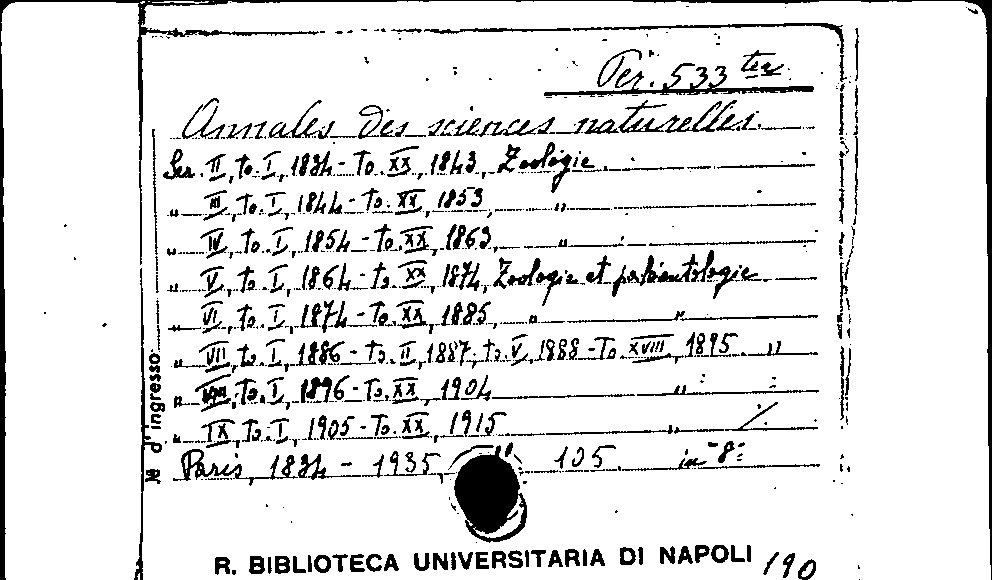 Per. 533 ter
Annales des sciences naturelles.
Ser. II, to. I, 1834 - To. XX, 1843, Zoologie.
" III, to. I, 1844 - To. XX, 1853, "
" IV, to. I, 1854 - to. XX, 1863, "
" V, to. I, 1864 - to. XX, 1874, Zoologie et paléontologie
" VI, to. I, 1874 - To. XX, 1885, " "
" VII, to. I, 1886 - to. II, 1887; to. V, 1888 - To. XVIII, 1895. "
" VIII, To. I, 1896 - To. XX, 1904 "
" IX, to. I, 1905 - To. XX, 1915. " /
Paris, 1834 - 1935, " 105. in-8º
Nº d'ingresso
R. BIBLIOTECA UNIVERSITARIA DI NAPOLI 190